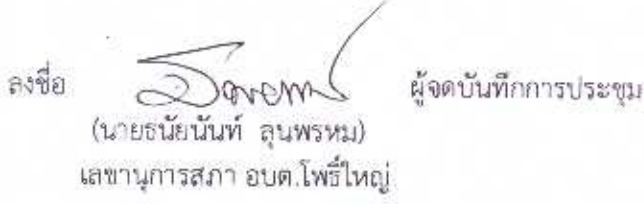 ลงชื่อ ผู้จดบันทึกการประชุม
(นายธนัยนันท์ ลุนพรหม)
เลขานุการสภา อบต.โพธิ์ใหญ่